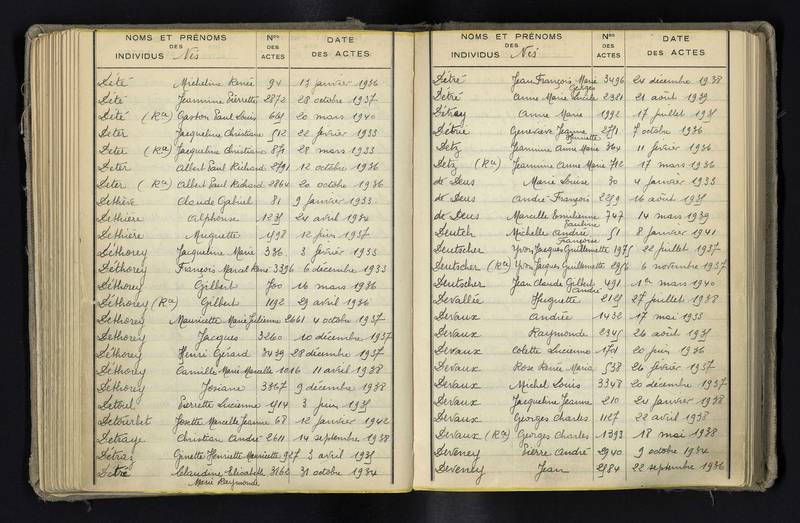 NOMS ET PRÉNOMS DES INDIVIDUS Nés Nos DES ACTES DATE DES ACTES
Dété Micheline Renée 94 13 janvier 1936
Dété Jeannine Pierrette 2872 28 octobre 1937
Dété (Rn) Gaston Paul Louis 20 mars 1940
Deter Jacqueline Christiane 512 22 février 1933
Deter (Rn) Jacqueline Christiane 871 28 mars 1933
Deter Albert Paul Richard 2791 12 octobre 1936
Deter (Rn) Albert Paul Richard 2864 20 octobre 1936
Déthève Claude Gabriel 81 9 janvier 1933
Dethière Alphonse 1231 21 avril 1934
Dethière Muguette 1598 12 juin 1937
Déthorey Jacqueline Marie 336 3 février 1933
Déthorey François Marcel René 3396 6 décembre 1933
Déthorey Gilbert 700 16 mars 1936
Déthorey (Rn) Gilbert 1192 29 avril 1936
Déthorey Mauricette Marie Julienne 2661 4 octobre 1937
Dethorey Jacques 3260 10 décembre 1937
Déthorey Henri Gérard 3439 28 décembre 1937
Déthorey Camille Marie Marcelle 1016 11 avril 1938
Déthorey Josiane 3367 9 décembre 1938
Détoul Pierrette Lucienne 1514 3 juin 1935
Detourbet Josette Marcelle Jeanne 68 12 janvier 1942
Detraye Christian André 2611 14 septembre 1938
Détraz Ginette Henriette Mauricette 927 3 avril 1935
Détré Claudine Elisabeth 3162 31 octobre 1934
Marie Raymonde
NOMS ET PRÉNOMS DES INDIVIDUS Nés Nos DES ACTES DATE DES ACTES
Détré Jean François Marie 3496 24 décembre 1938
Georges
Détré Anne Marie Lucile 2381 21 août 1939
Détrey Anne Marie 1992 17 juillet 1935
Détrie Geneviève Jeanne 2751 7 octobre 1936
Henriette
Detz Jeannine Anne Marie 364 11 février 1936
Detz (Rn) Jeannine Anne Marie 712 17 mars 1936
de Deus Marie Louise 30 4 janvier 1933
de Deus André François 2259 16 août 1935
de Deus Marcelle Emilienne 747 14 mars 1939
Pauline
Deutch Michelle Andrée 51 8 janvier 1941
Françoise
Deutscher Yvon Jacques Guillemette 1975 22 juillet 1937
Deutscher (Rn) Yvon Jacques Guillemette 2956 6 novembre 1937
Deutscher Jean Claude Gilbert 491 1er mars 1940
André
Devallée Huguette 2125 27 juillet 1938
Devaux Andrée 1432 17 mai 1933
Devaux Raymonde 2345 26 août 1935
Devaux Colette Lucienne 20 juin 1936
Devaux Rose Renée Marie 538 26 février 1937
Devaux Michel Louis 3348 20 décembre 1937
Devaux Jacqueline Jeanne 210 24 janvier 1938
Devaux Georges Charles 1127 22 avril 1938
Devaux (Rn) Georges Charles 1393 18 mai 1938
Deveney Pierre André 2940 9 octobre 1934
Deveney Jean 2584 22 septembre 1936